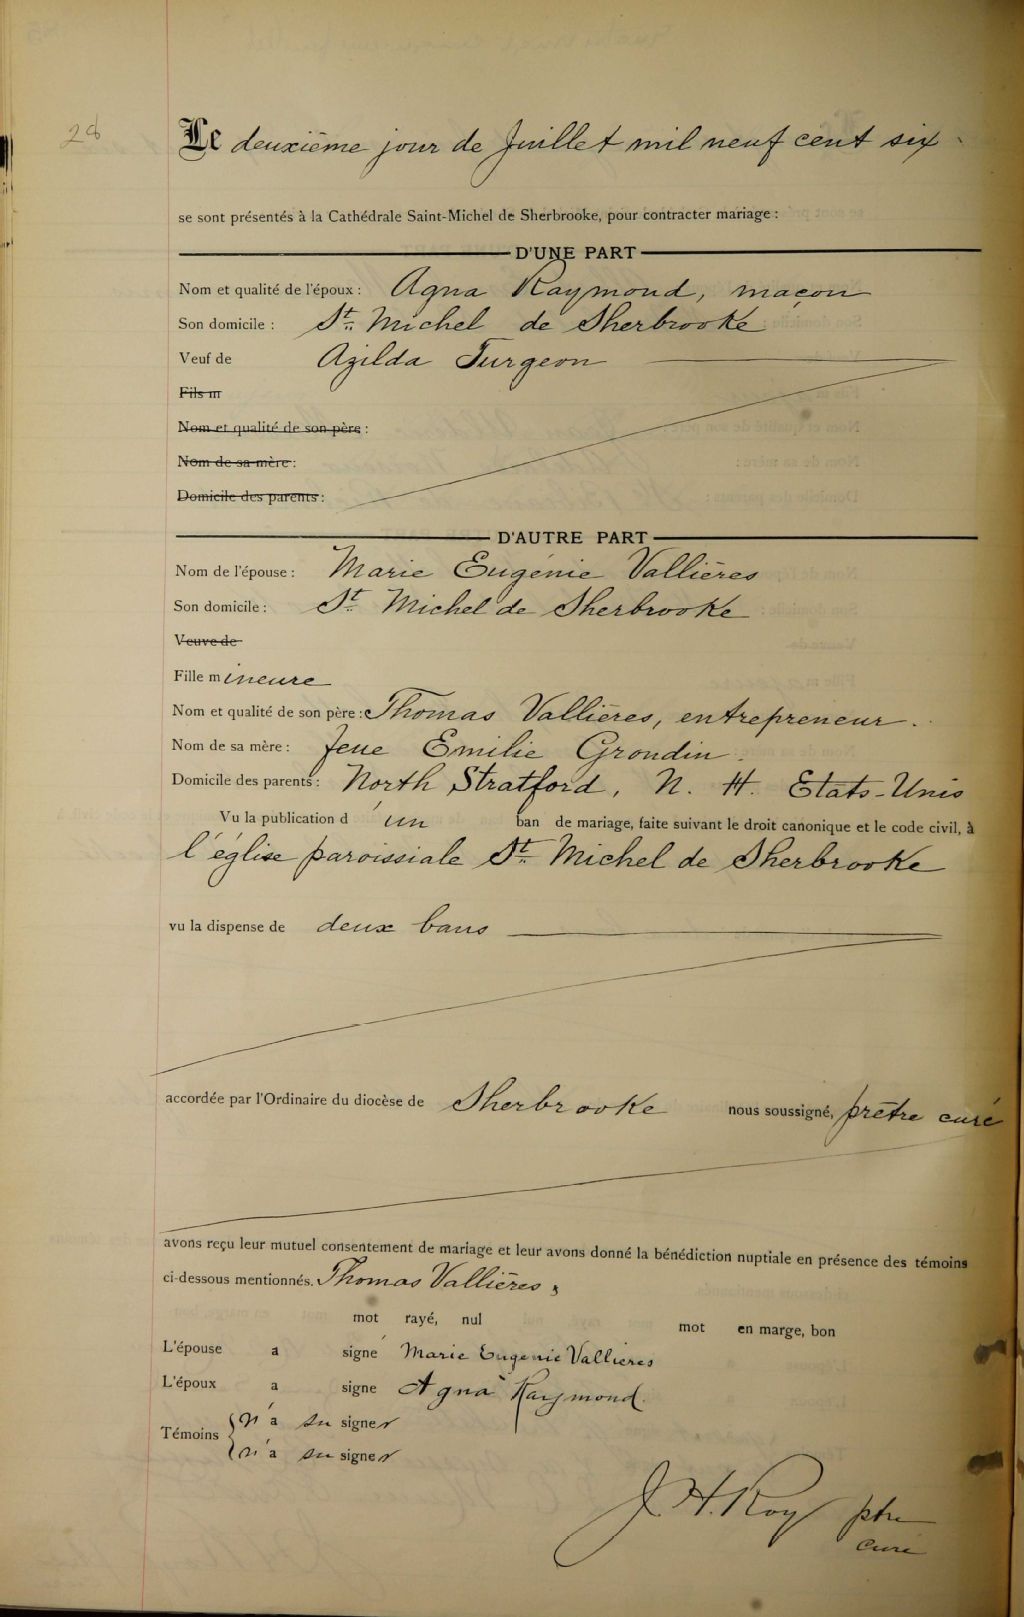 28
Le deuxième jour de Juillet mil neuf cent six
se sont présentés à la Cathédrale Saint-Michel de Sherbrooke, pour contracter mariage :
D'UNE PART
Nom et qualité de l'époux : Agna Raymond, maçon
Son domicile : St. Michel de Sherbrooke
Veuf de Azilda Turgeon
Fils m
Nom et qualité de son père :
Nom de sa mère :
Domicile des parents :
D'AUTRE PART
Nom de l'épouse : Marie Eugénie Vallières
Son domicile : St. Michel de Sherbrooke
Veuve de
Fille mineure
Nom et qualité de son père : Thomas Vallières, entrepreneur.
Nom de sa mère : feue Emilie Grondin.
Domicile des parents : North Stratford, N. H. Etats-Unis
Vu la publication d'un ban de mariage, faite suivant le droit canonique et le code civil, à
l'église paroissiale St. Michel de Sherbrooke
vu la dispense de deux bans
accordée par l'Ordinaire du diocèse de Sherbrooke nous soussigné, prêtre curé
avons reçu leur mutuel consentement de mariage et leur avons donné la bénédiction nuptiale en présence des témoins
ci-dessous mentionnés. Thomas Vallières,
mot rayé, nul mot en marge, bon
L'épouse a signé Marie Eugenie Vallieres
L'époux a signe Agna Raymond.
Témoins { n'a su signer
{ n'a su signer
J. H. Roy ptre
curé